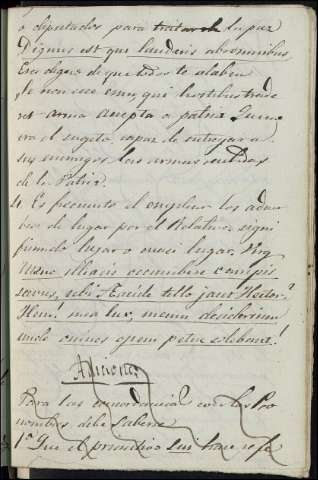 ó diputados para tratar de la paz
Dignus est qui lauderis ab omnibus
Eres digno de que todos te alaben
Is non sum qui hostibus trade
ret arma accepta a patria
era el sugeto capaz de entregar a
sus enemigos las armas recibidas
de la Patria.
4. Es frecuente el emplear los adver
bios de lugar por el Relativo, signi
ficando lugar o cuasi lugar. Vrg
Mene Iliacis occumbere campis
saevus, ubi Aacide telo jacet Hector?
Heu! mea lux, meum desiderium
unde omnes opem petere solebant!
Adiciones
Para las concordancias con los Pro
nombres debe saberse
1º Que el primitivo Sui hace refe